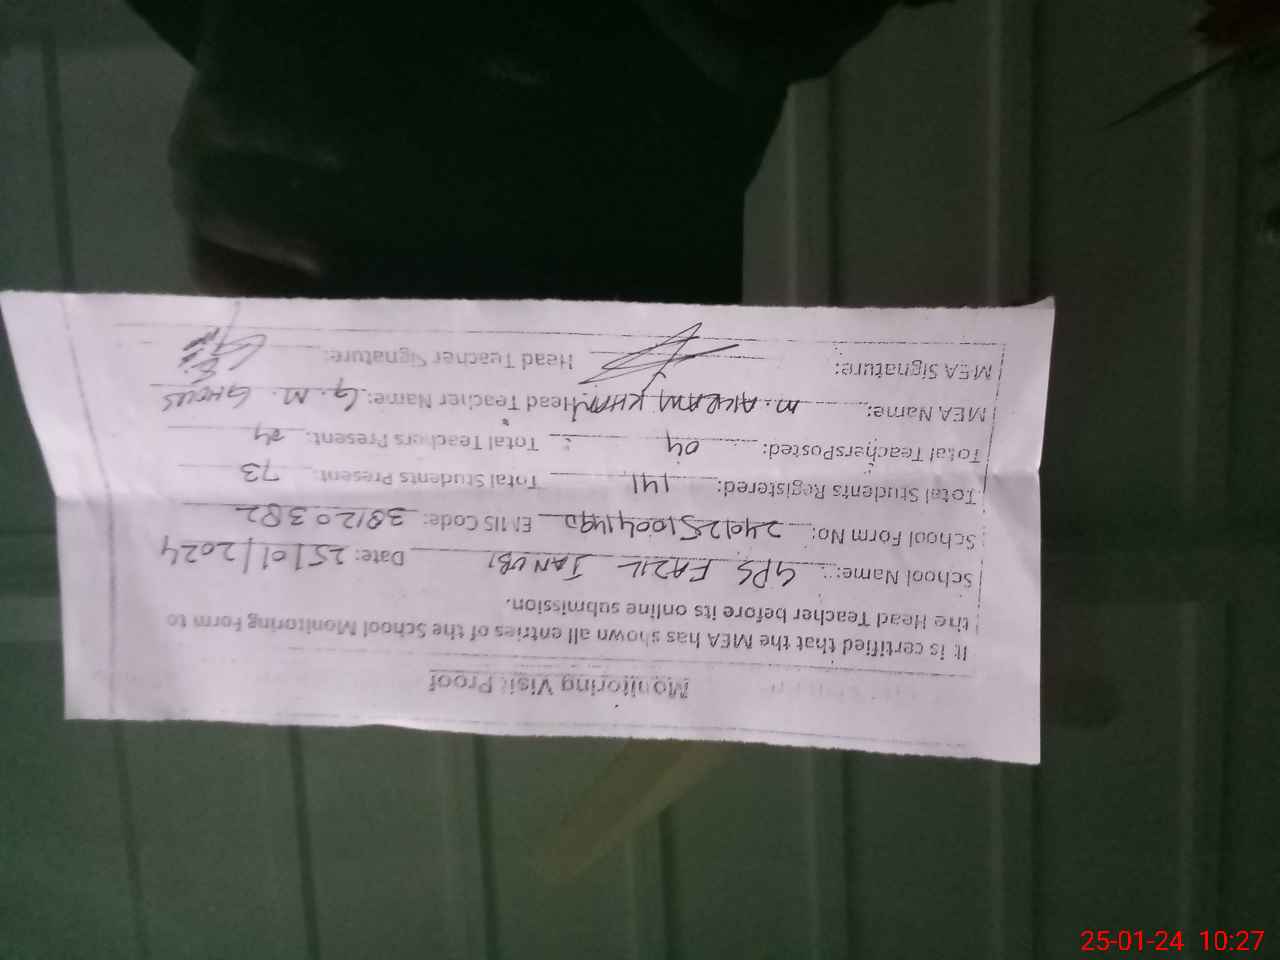 Monitoring Visit Proof
It is certified that the MEA has shown all entries of the School Monitoring Form to
the Head Teacher before its online submission.
School Name: GPS FAZIL JANUBI Date: 25/01/2024
School Form No: EMIS Code: 38120382
Total Students Registered: 141 Total Students Present: 73
Total TeachersPosted: 04 Total Teachers Present: 04
MEA Name: M. AKRAM KHAN Head Teacher Name: G. M. GHOUS
MEA Signature: Head Teacher Signature:
25-01-24 10:27